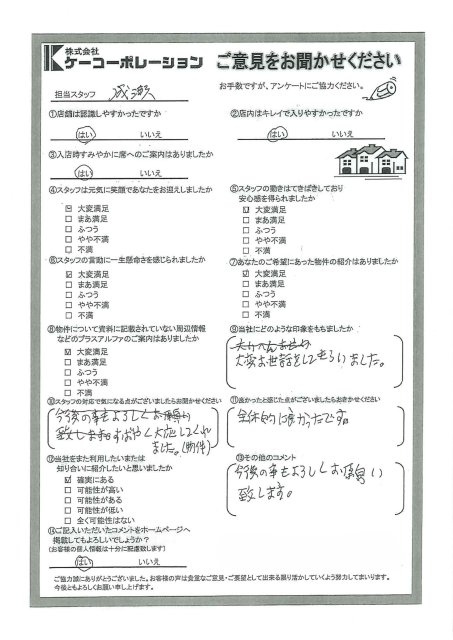 株式会社
ケーコーポレーション ご意見をお聞かせください
お手数ですが、アンケートにご協力ください。
担当スタッフ
①店舗は認識しやすかったですか ②店内はキレイで入りやすかったですか
はい いいえ はい いいえ
③入店時すみやかに席へのご案内はありましたか
はい いいえ
④スタッフは元気に笑顔であなたをお迎えしましたか
大変満足
まあ満足
ふつう
やや不満
不満
⑤スタッフの動きはてきぱきしており
安心感を得られましたか
大変満足
まあ満足
ふつう
やや不満
不満
⑥スタッフの言動に一生懸命さを感じられましたか
大変満足
まあ満足
ふつう
やや不満
不満
⑦あなたのご希望にあった物件の紹介はありましたか
大変満足
まあ満足
ふつう
やや不満
不満
⑧物件について資料に記載されていない周辺情報
などのプラスアルファのご案内はありましたか
大変満足
まあ満足
ふつう
やや不満
不満
⑨当社にどのような印象をもちましたか
大変お世話をしてもらいました。
⑩スタッフの対応で気になる点がございましたらお聞かせください
今後の事もよろしく
致します
ました。(物件)
⑪良かったと感じた点がございましたらおきかせください
全体的に良かったです。
⑫当社をまた利用したいまたは
知り合いに紹介したいと思いましたか
確実にある
可能性が高い
可能性がある
可能性が低い
全く可能性はない
⑬その他のコメント
今後の事もよろしくお願い
致します。
⑭ご記入いただいたコメントをホームページへ
掲載してもよろしいでしょうか?
(お客様の個人情報は十分に配慮致します)
はい いいえ
ご協力誠にありがとうございました。お客様の声は貴重なご意見・ご要望として出来る限り活かしていくよう努力してまいります。
今後ともよろしくお願い申し上げます。